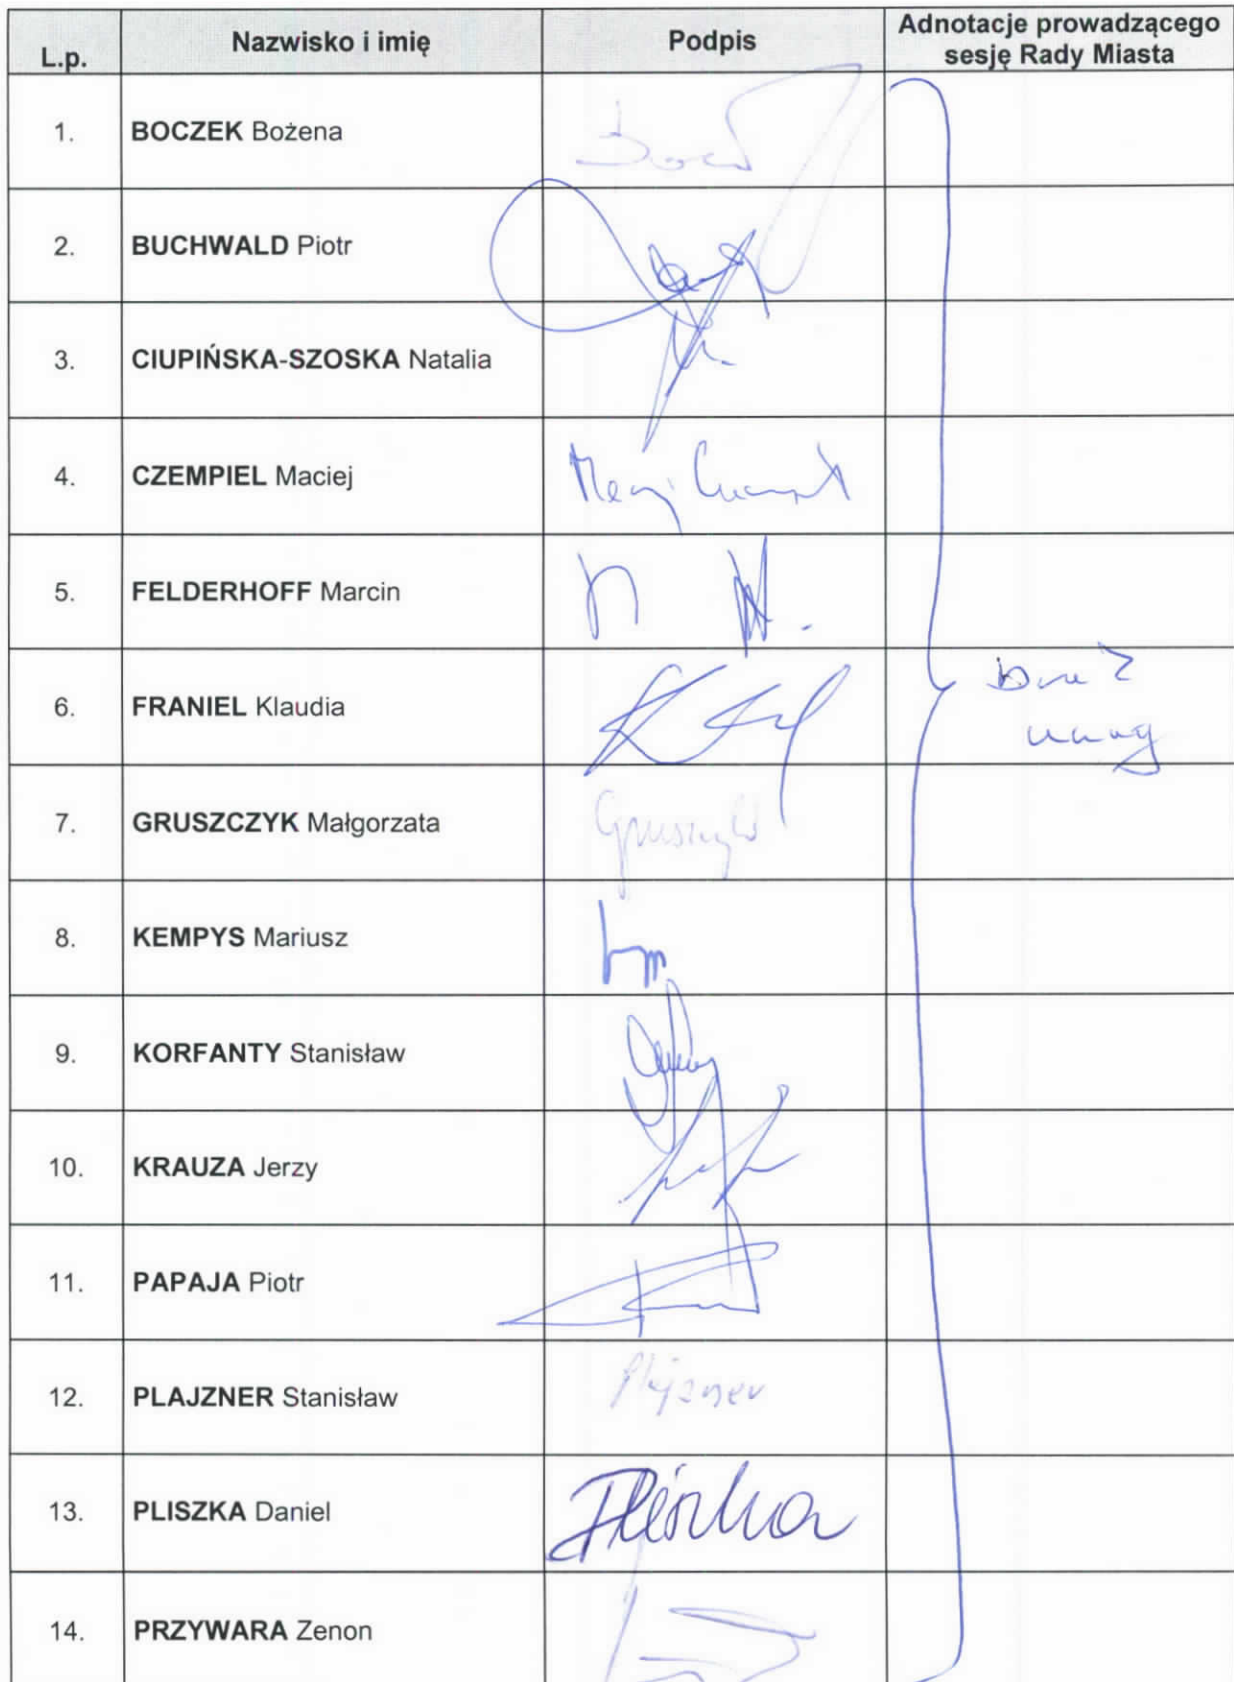 L.p. Nazwisko i imię Podpis Adnotacje prowadzącego
sesję Rady Miasta
1. BOCZEK Bożena
2. BUCHWALD Piotr
3. CIUPIŃSKA-SZOSKA Natalia
4. CZEMPIEL Maciej
5. FELDERHOFF Marcin
6. FRANIEL Klaudia
uwag
7. GRUSZCZYK Małgorzata
8. KEMPYS Mariusz
9. KORFANTY Stanisław
10. KRAUZA Jerzy
11. PAPAJA Piotr
12. PLAJZNER Stanisław Plajzner
13. PLISZKA Daniel Pliszka
14. PRZYWARA Zenon